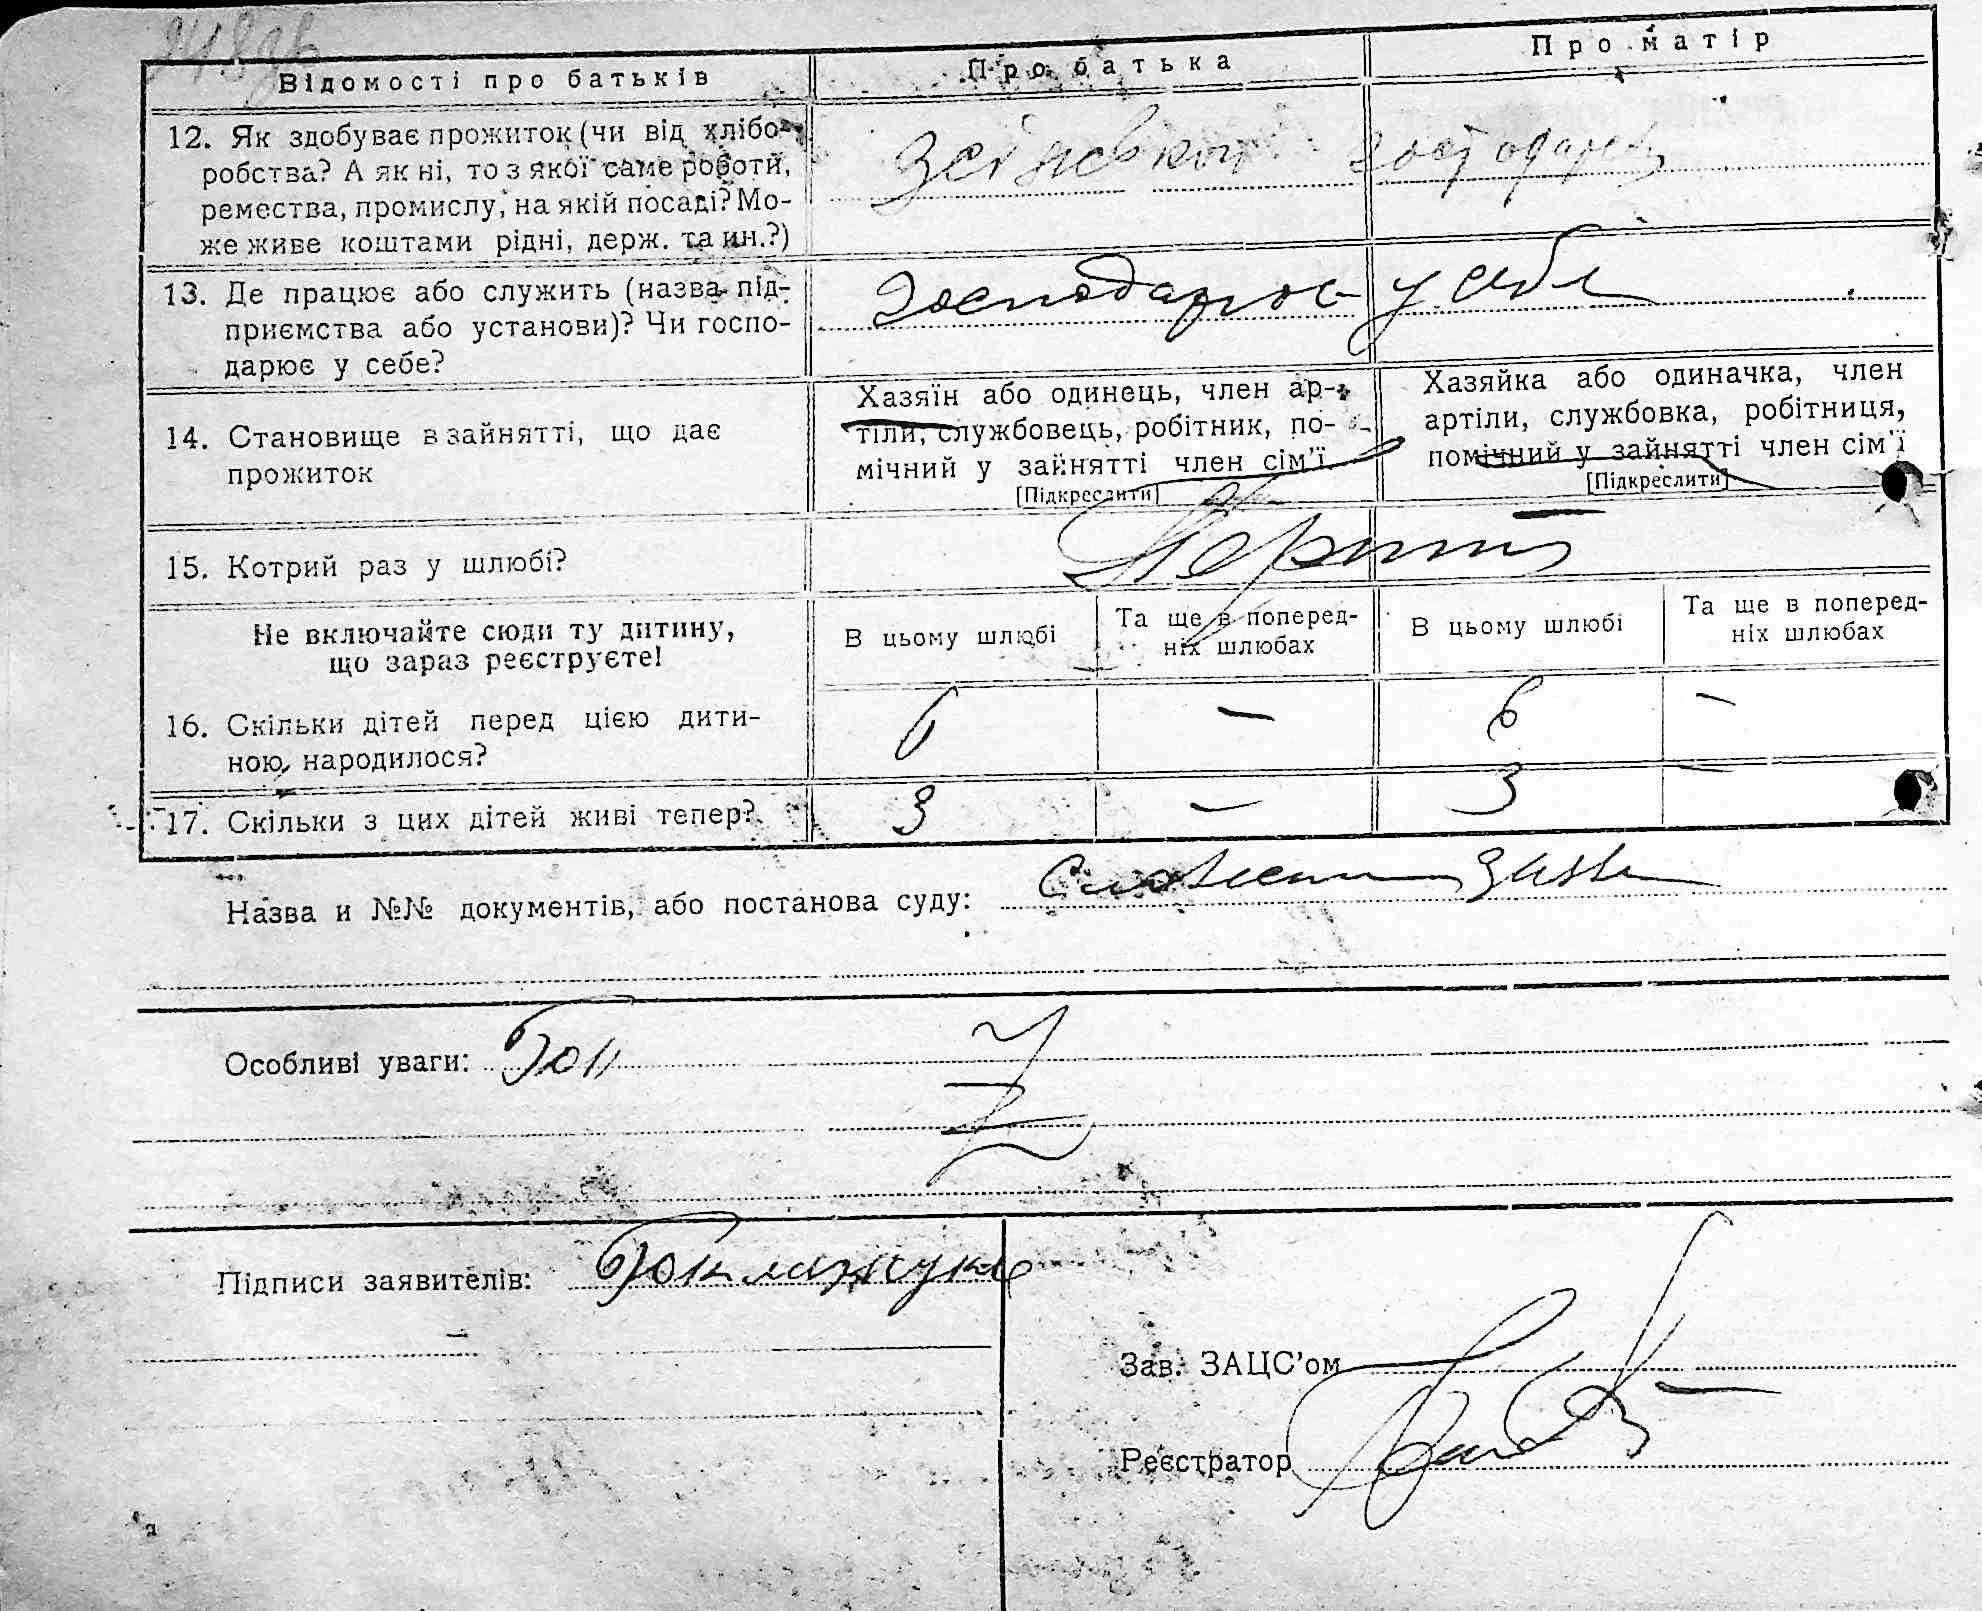 Відомості про батьків
Про батька
Про матір
12. Як здобуває прожиток (чи від хлібо-
робства? А як ні, то з якої саме роботи,
ремества, промислу, на якій посаді? Мо-
же живе коштами рідні, держ. та ин.?)
13. Де працює або служить (назва під-
приємства або установи)? Чи госпо-
дарює у себе?
Господарює у себе
14. Становище в зайнятті, що дає
прожиток
Хазяїн або одинець, член ар-
тіли, службовець, робітник, по-
мічний у зайнятті член сім'ї
[Підкреслити]
Хазяйка або одиначка, член
артіли, службовка, робітниця,
помічний у зайнятті член сім'ї
[Підкреслити]
15. Котрий раз у шлюбі?
Не включайте сюди ту дитину,
що зараз реєструєте!
В цьому шлюбі
Та ще в поперед-
ніх шлюбах
В цьому шлюбі
Та ще в поперед-
ніх шлюбах
16. Скільки дітей перед цією дити-
ною, народилося?
6 – 6 –
17. Скільки з цих дітей живі тепер?
3 – 3 –
Назва и №№ документів, або постанова суду:
Особливі уваги:
Підписи заявителів:
Зав. ЗАЦС'ом
Реєстратор